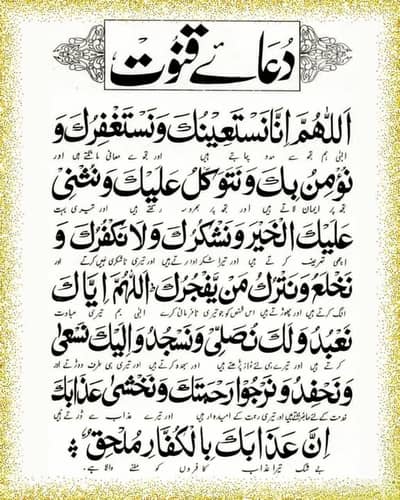 دُعَائے قنُوت
اَللّٰهُمَّ اِنَّا نَسْتَعِيْنُكَ وَنَسْتَغْفِرُكَ وَ
الہی ہم تجھ سے مدد چاہتے ہیں اور تجھ سے معافی مانگتے ہیں اور
نُؤْمِنُ بِكَ وَنَتَوَكَّلُ عَلَيْكَ وَنُثْنِیْ
تجھ پر ایمان لاتے ہیں اور تجھ پر بھروسہ رکھتے ہیں اور تیری بہت
عَلَيْكَ الْخَيْرَ وَنَشْكُرُكَ وَلَا نَكْفُرُكَ وَ
اچھی تعریف کرتے ہیں اور تیرا شکر ادا کرتے ہیں اور تیری ناشکری نہیں کرتے اور
نَخْلَعُ وَنَتْرُكُ مَنْ يَّفْجُرُكَ اَللّٰهُمَّ اِيَّاكَ
الگ کرتے ہیں اور چھوڑتے ہیں اس شخص کو جو تیری نافرمانی کرے الہی ہم تیری عبادت
نَعْبُدُ وَلَكَ نُصَلِّیْ وَنَسْجُدُ وَاِلَيْكَ نَسْعٰی
کرتے ہیں اور تیرے ہی لئے نماز پڑھتے ہیں اور سجدہ کرتے ہیں اور تیری ہی طرف دوڑتے اور
وَنَحْفِدُ وَنَرْجُوْا رَحْمَتَكَ وَنَخْشٰی عَذَابَكَ
خدمت کے لئے حاضر ہوتے ہیں اور تیری رحمت کے امیدوار ہیں اور تیرے عذاب سے ڈرتے ہیں
اِنَّ عَذَابَكَ بِالْكُفَّارِ مُلْحِقٌ
بے شک تیرا عذاب کافروں کو ملنے والا ہے۔